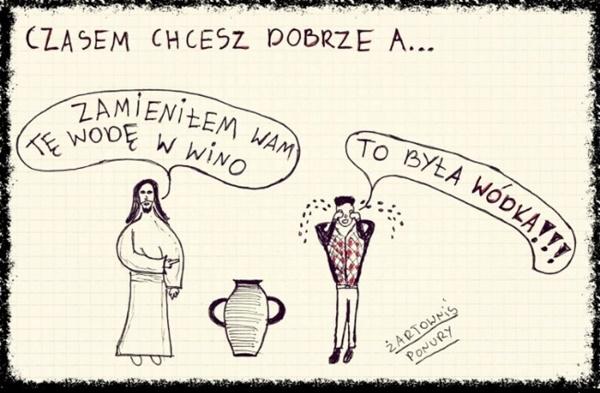 CZASEM CHCESZ DOBRZE A...
ZAMIENIŁEM WAM
TĘ WODĘ W WINO
TO BYŁA WÓDKA!!!
ŻARTOWNIŚ
PONURY